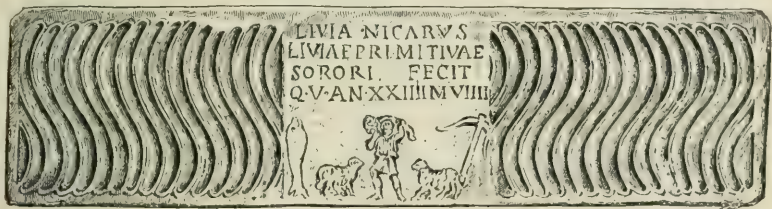 LIVIA·NICARVS
LIVIAE PRIMITIVAE
SORORI FECIT
Q·V·AN·XXIIII M VIIII